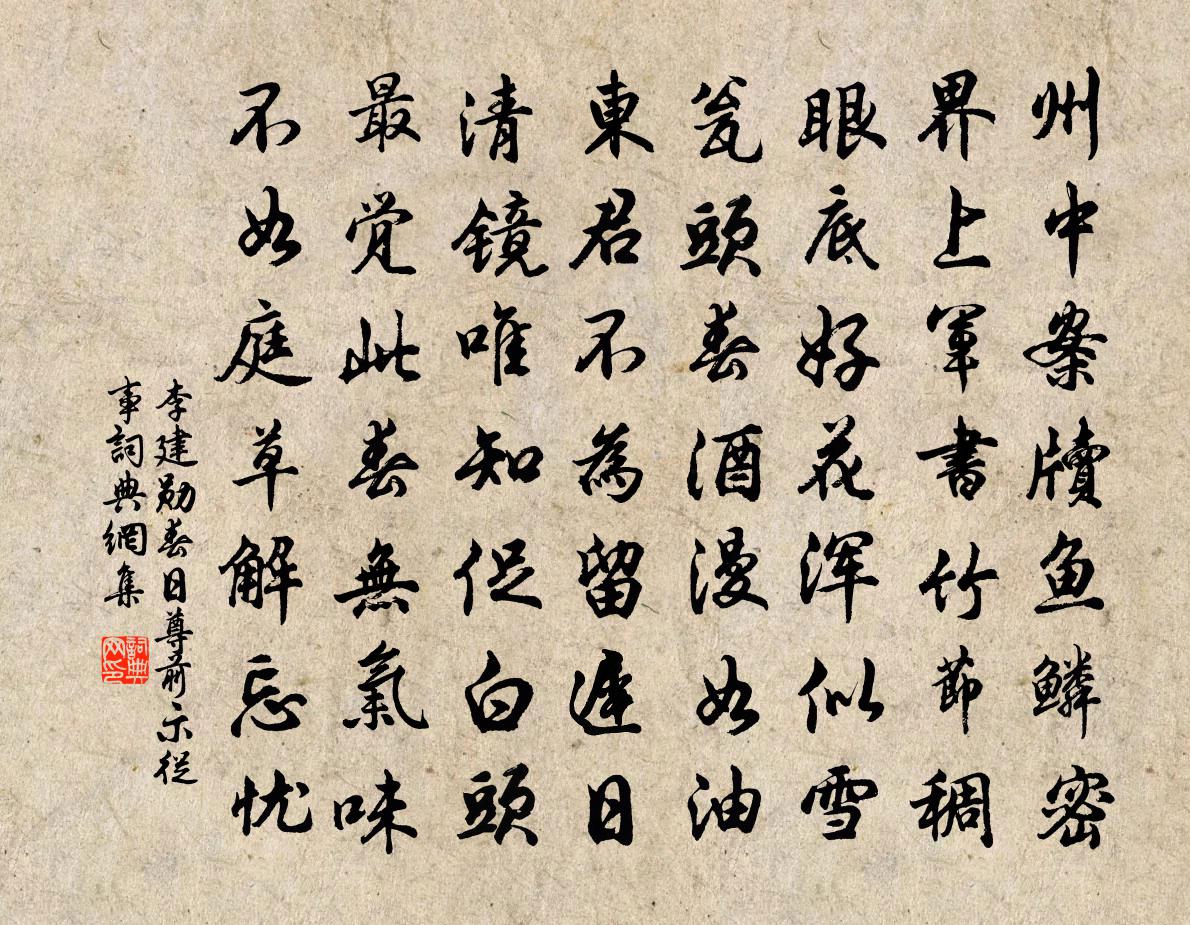 州中案牘魚鱗密
界上軍書竹節稠
眼底好花浑似雪
瓮頭春酒漫如油
東君不為留遲日
清镜唯知促白頭
最觉此春無氣味
不如庭草解忘忧
李建勋春日尊前示從
事詞典網集
詞典网印